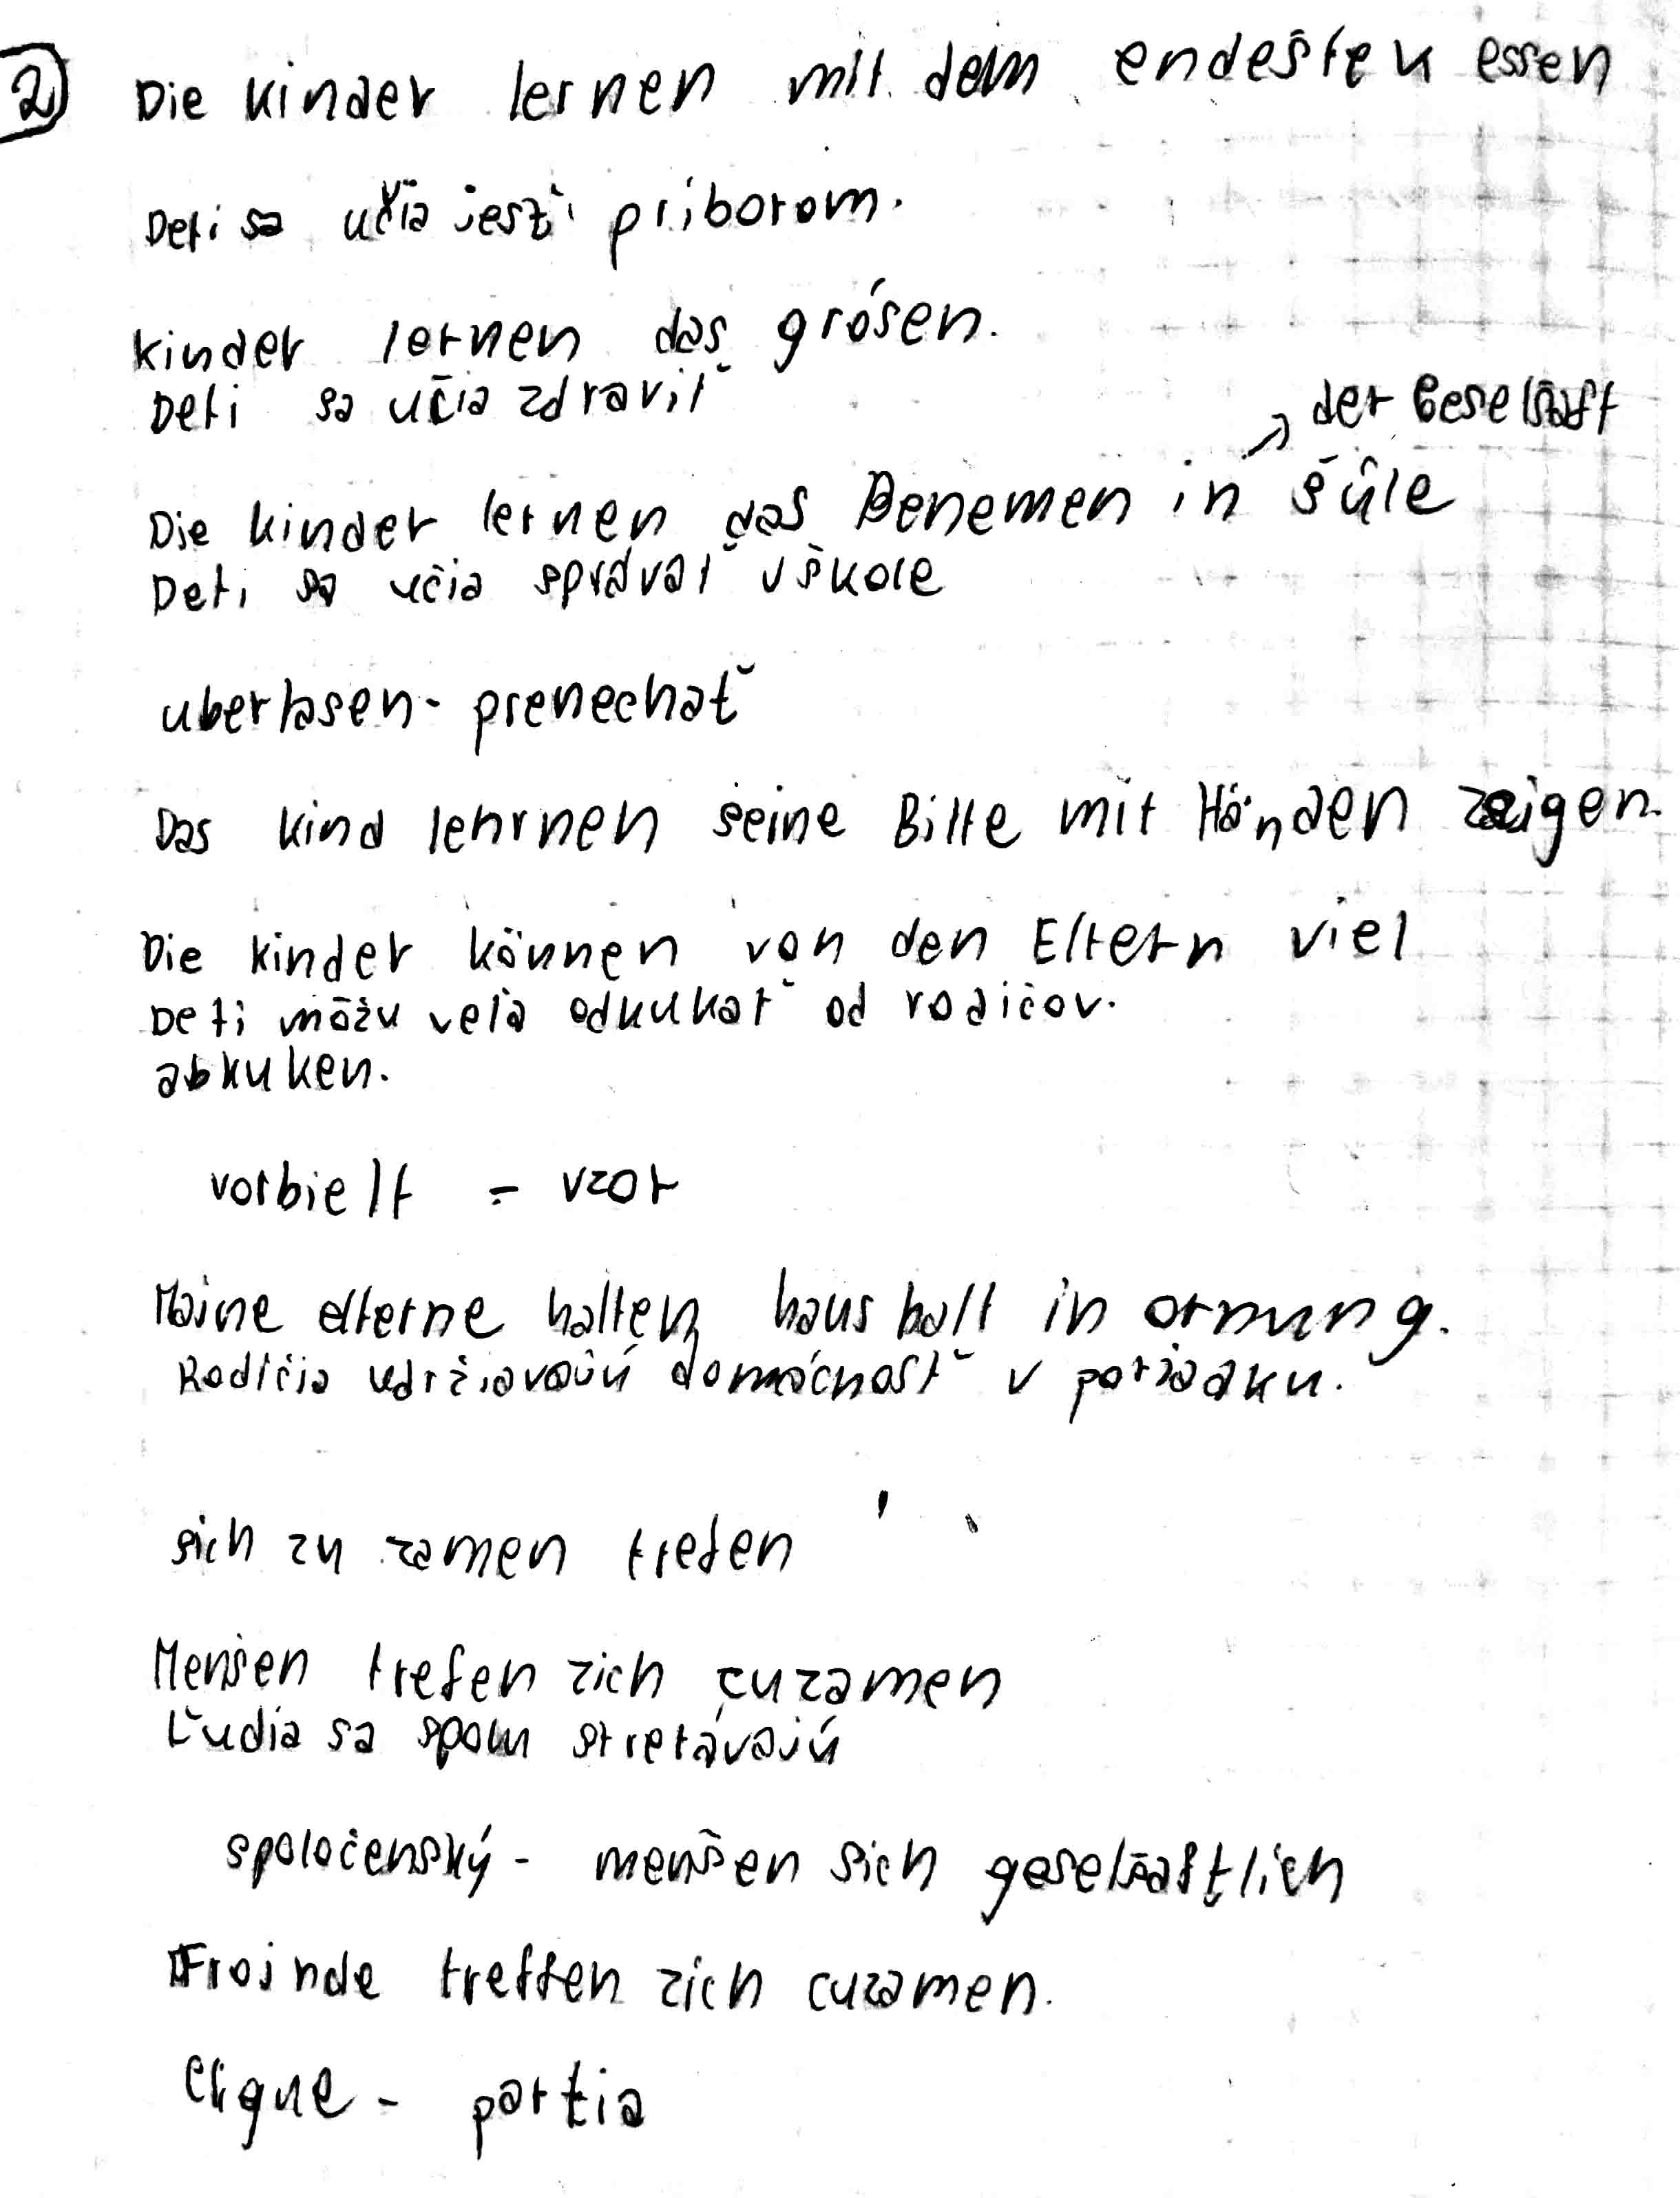 2 Die kinder lernen mit dem endeštek essen
Deti sa učia jesť príborom.
kinder lernen das grósen.
Deti sa učia zdraviť
der Geselšaft
Die kinder lernen das Benemen in šůle
Deti sa učia správať v škole
uberlasen - prenechať
Das kind lehrnen seine Bitte mit Händen zeigen.
Die kinder können von den Eltern viel
Deti môžu veľa odkukať od rodičov.
abkuken.
vorbielt = vzor
Maine elterne halten haus halt in ornung.
Rodičia udržiavajú domácnosť v poriadku.
sich zu zamen trefen
Menšen trefen zich cuzamen
Ľudia sa spolu stretávajú
spoločenský - menšen sich geselšaftlich
Froinde treffen zich cuzamen.
Clique - partia